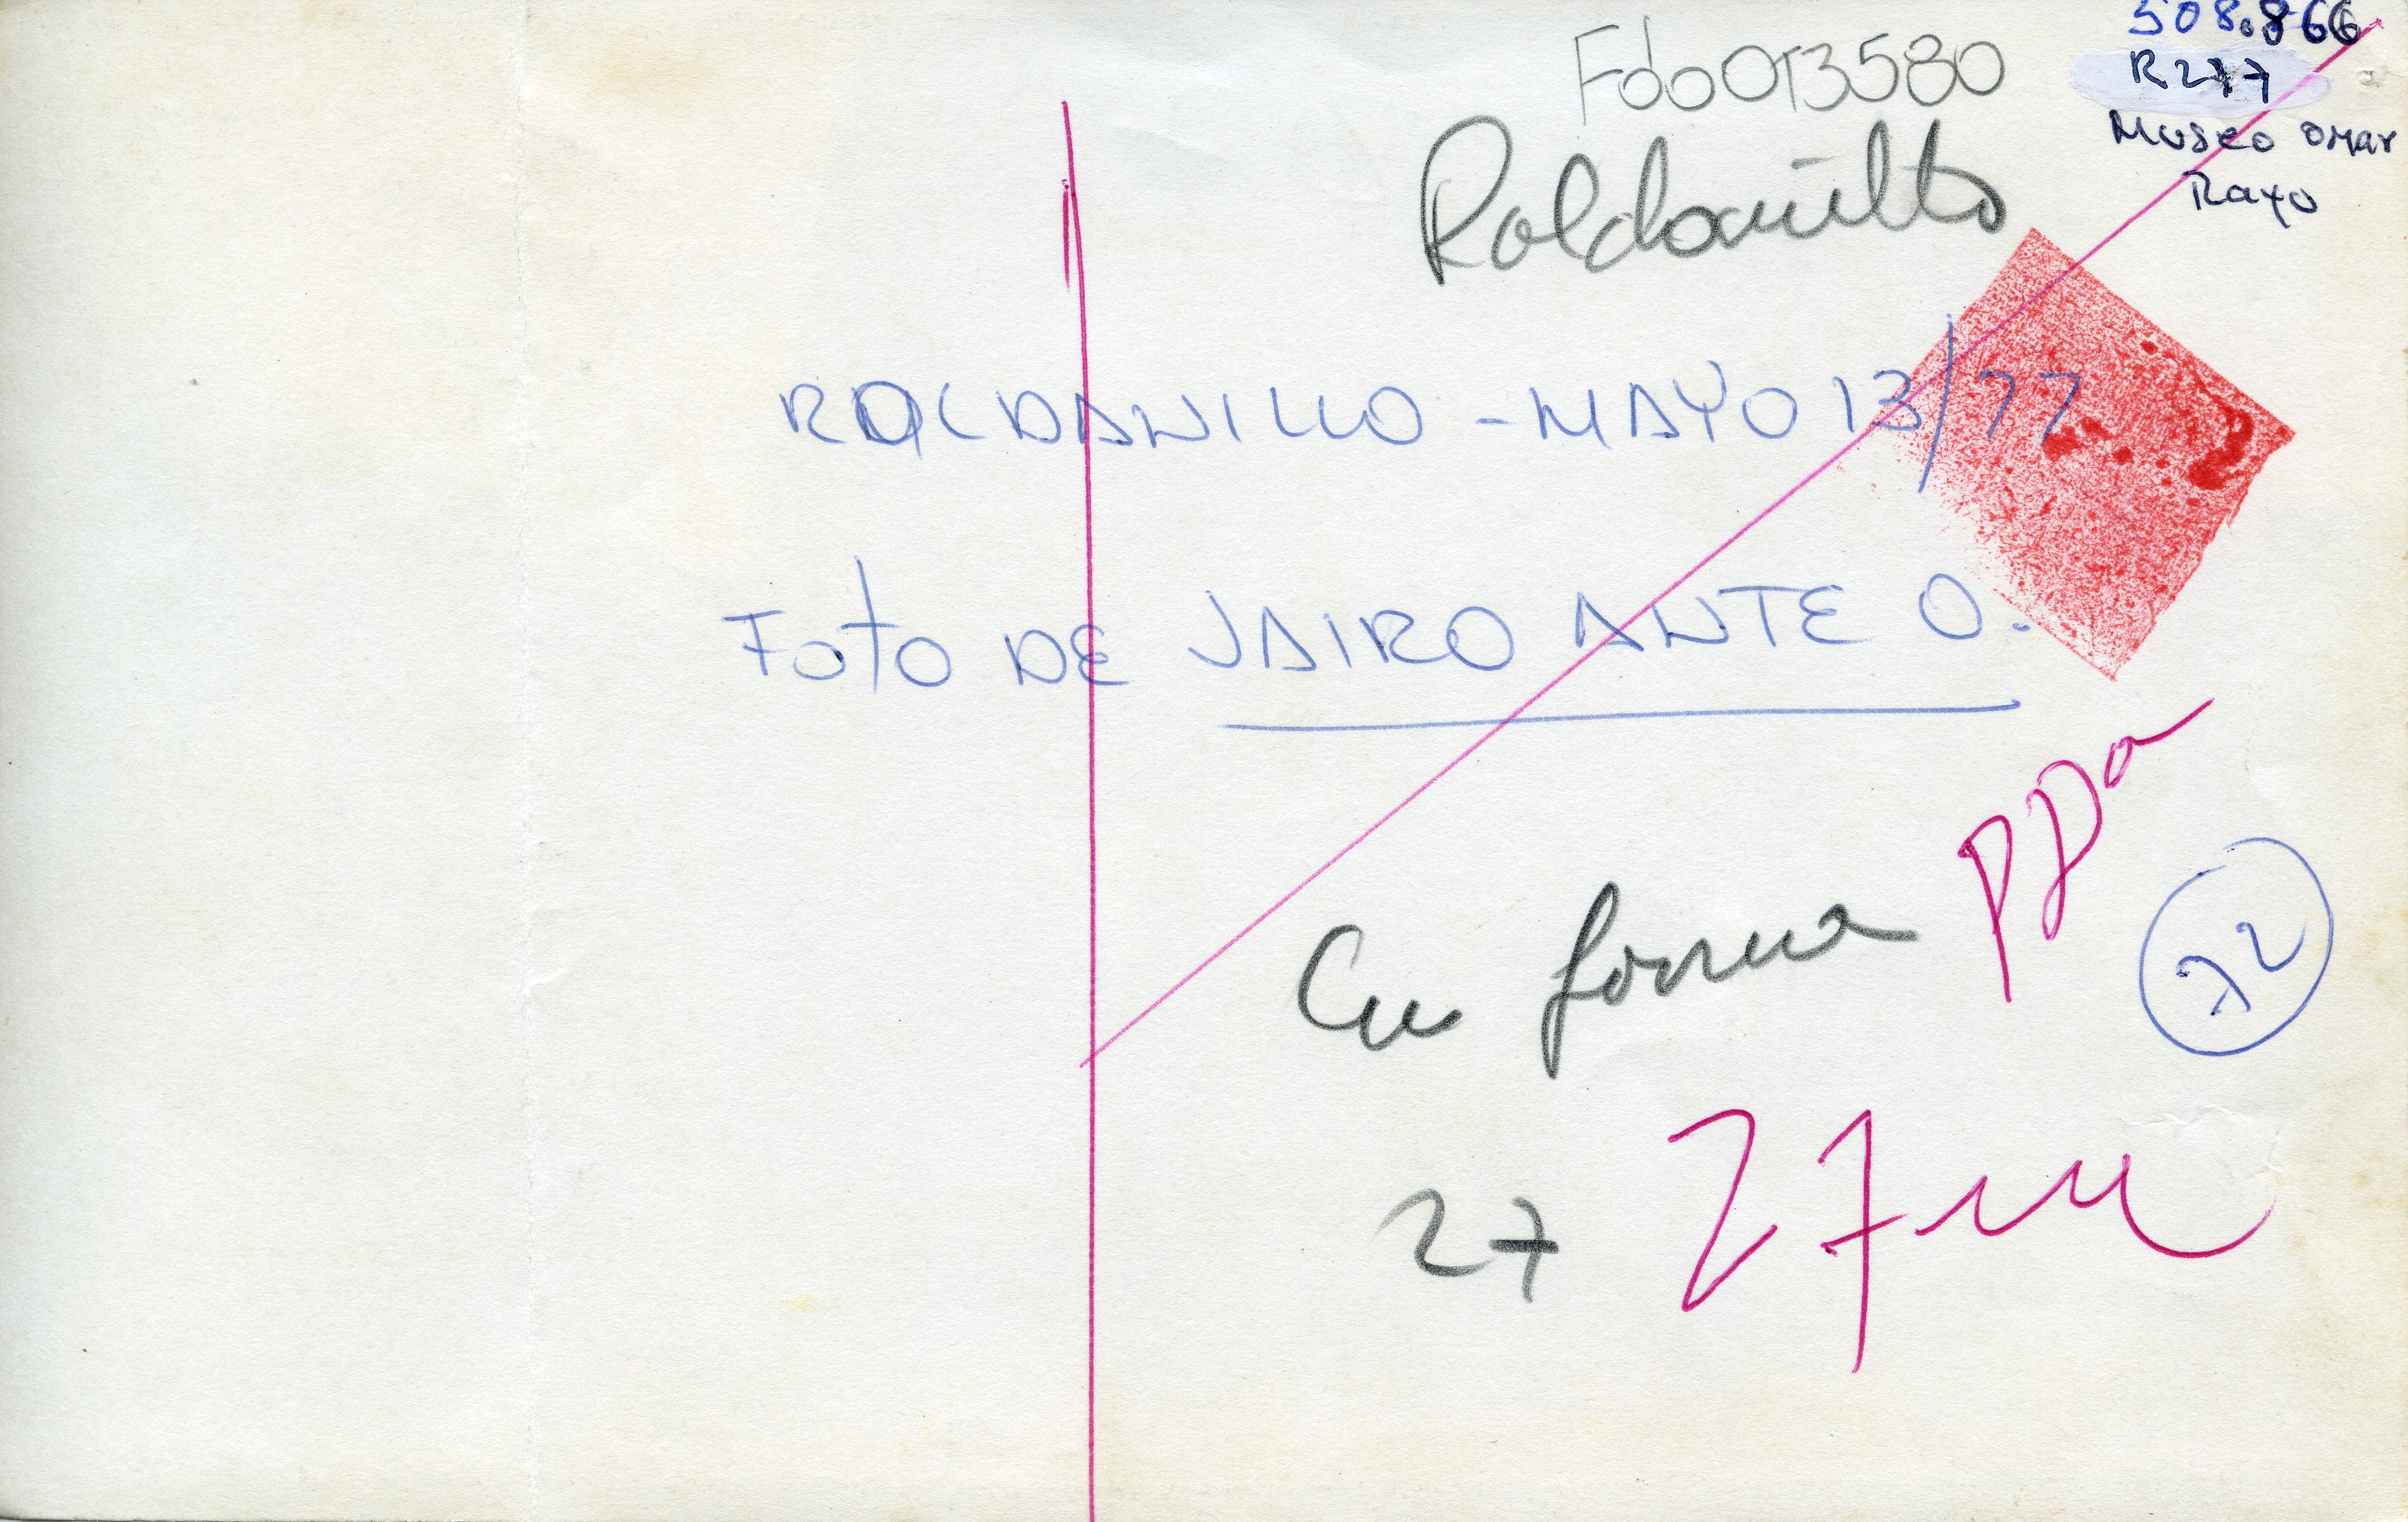 508.866
R277
Museo Omar
Rayo
Fdo013580
Roldanillo
ROLDANILLO - MAYO 13/77
Foto DE JAIRO ANTE O.
ppa
En forma
72
27
27m